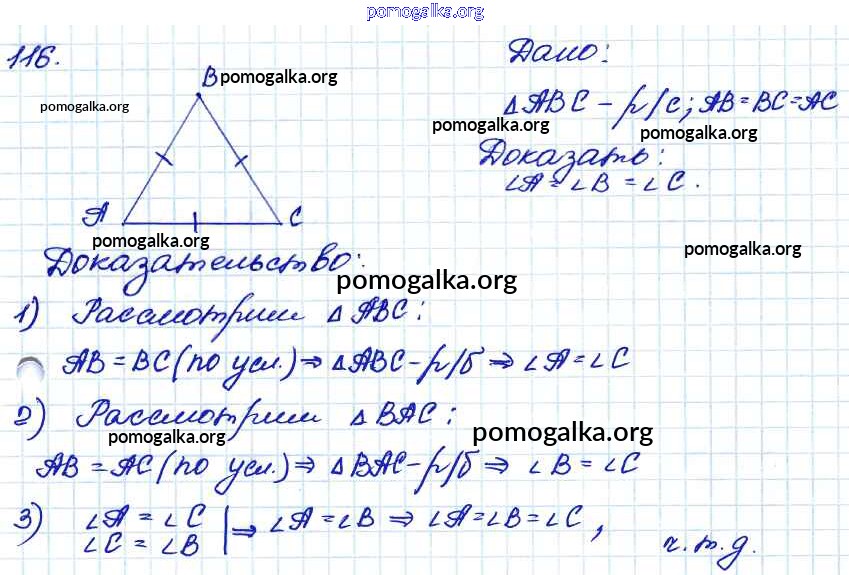 pomogalka.org
116.
Дано:
B pomogalka.org
pomogalka.org
△ABC - р/с; AB = BC = AC
pomogalka.org
pomogalka.org
Доказать:
∠A = ∠B = ∠C.
A C
pomogalka.org
pomogalka.org
Доказательство:
pomogalka.org
1) Рассмотрим △ABC:
AB = BC (по усл.) ⇒ △ABC - р/б ⇒ ∠A = ∠C
2) Рассмотрим △BAC:
pomogalka.org
pomogalka.org
AB = AC (по усл.) ⇒ △BAC - р/б ⇒ ∠B = ∠C
3) ∠A = ∠C | ⇒ ∠A = ∠B ⇒ ∠A = ∠B = ∠C,
∠C = ∠B
ч.т.д.